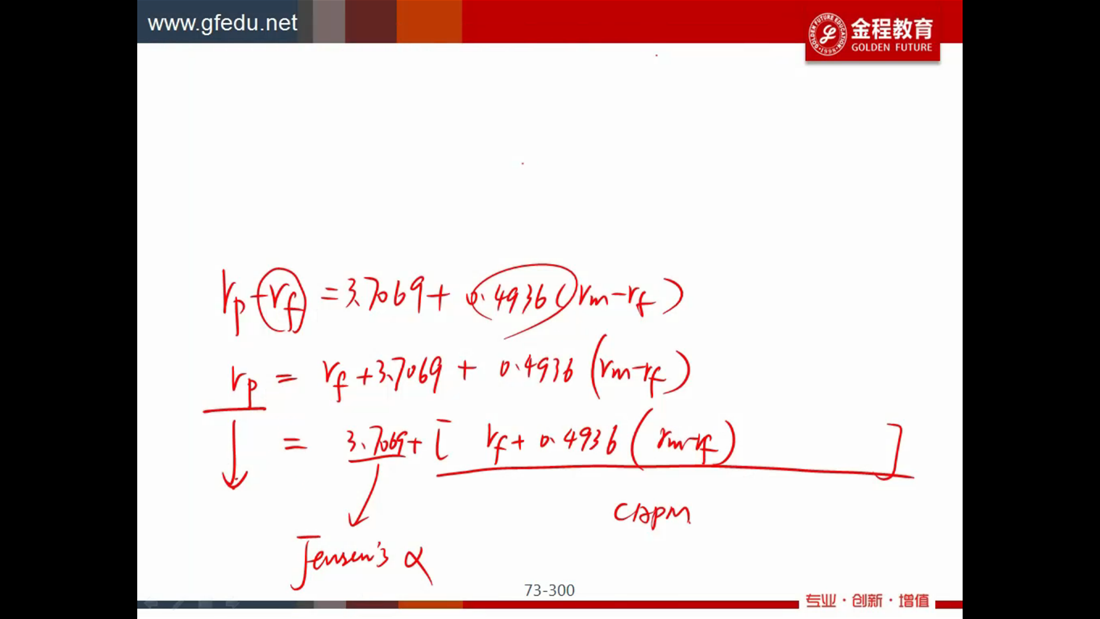 www.gfedu.net
金程教育
GOLDEN FUTURE
rp-rf = 3.7069 + 0.4936 (rm-rf)
rp = rf + 3.7069 + 0.4936 (rm-rf)
= 3.7069 + [ rf + 0.4936 (rm-rf) ]
CAPM
Jensen's α
73-300
专业·创新·增值